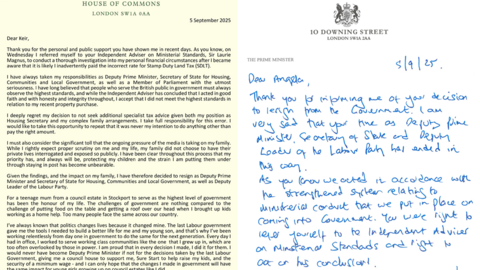 HOUSE OF COMMONS
LONDON SW1A 0AA
5 September 2025
Dear Keir,
Thank you for the personal and public support you have shown me in recent days. As you know, on
Wednesday I referred myself to your Independent Advisor on Ministerial Standards, Sir Laurie
Magnus, to conduct a thorough investigation into my personal financial circumstances after I became
aware that it is likely I inadvertently paid the incorrect rate of Stamp Duty Land Tax (SDLT).
I have always taken my responsibilities as Deputy Prime Minister, Secretary of State for Housing,
Communities and Local Government, as well as a Member of Parliament with the utmost
seriousness. I have long believed that people who serve the British public in government must always
observe the highest standards, and while the Independent Adviser has concluded that I acted in good
faith and with honesty and integrity throughout, I accept that I did not meet the highest standards in
relation to my recent property purchase.
I deeply regret my decision to not seek additional specialist tax advice given both my position as
Housing Secretary and my complex family arrangements. I take full responsibility for this error. I
would like to take this opportunity to repeat that it was never my intention to do anything other than
pay the right amount.
I must also consider the significant toll that the ongoing pressure of the media is taking on my family.
While I rightly expect proper scrutiny on me and my life, my family did not choose to have their
private lives interrogated and exposed so publicly. I have been clear throughout this process that my
priority has, and always will be, protecting my children and the strain I am putting them under
through staying in post has become unbearable.
Given the findings, and the impact on my family, I have therefore decided to resign as Deputy Prime
Minister and Secretary of State for Housing, Communities and Local Government, as well as Deputy
Leader of the Labour Party.
For a teenage mum from a council estate in Stockport to serve as the highest level of government
has been the honour of my life. The challenges of government are nothing compared to the
challenge of putting food on the table and getting a roof over our head when I brought up kids
working as a home help. Too many people face the same across our country.
I've always known that politics changes lives because it changed mine. The last Labour government
gave me the tools I needed to build a better life for me and my young son, and that's why I've been
working relentlessly from day one in government to do the same for the next generation. Every day I
had in office, I worked to serve working class communities like the one that I grew up in, which are
too often overlooked by those in power. I am proud that in every decision I made, I did it for them. I
would never have become Deputy Prime Minister if not for the decisions taken by the last Labour
Government, giving me a council house to support me, Sure Start to help raise my kids, and the
security of a minimum wage - and I can only hope that the changes I made in government will have
10 DOWNING STREET
LONDON SW1A 2AA
THE PRIME MINISTER
5/9/25.
Dear Angela,
Thank you for informing me of your decision
to resign from the Government. I am
very sad that your time as Deputy Prime
Minister, Secretary of State and Deputy
Leader of the Labour Party has ended in
this way.
As you know we acted in accordance with
the strengthened system relating to
ministerial conduct that we put in place on
coming into Government. You were right to
refer yourself to the Independent Adviser
on Ministerial Standards and right to
act on his conclusion.